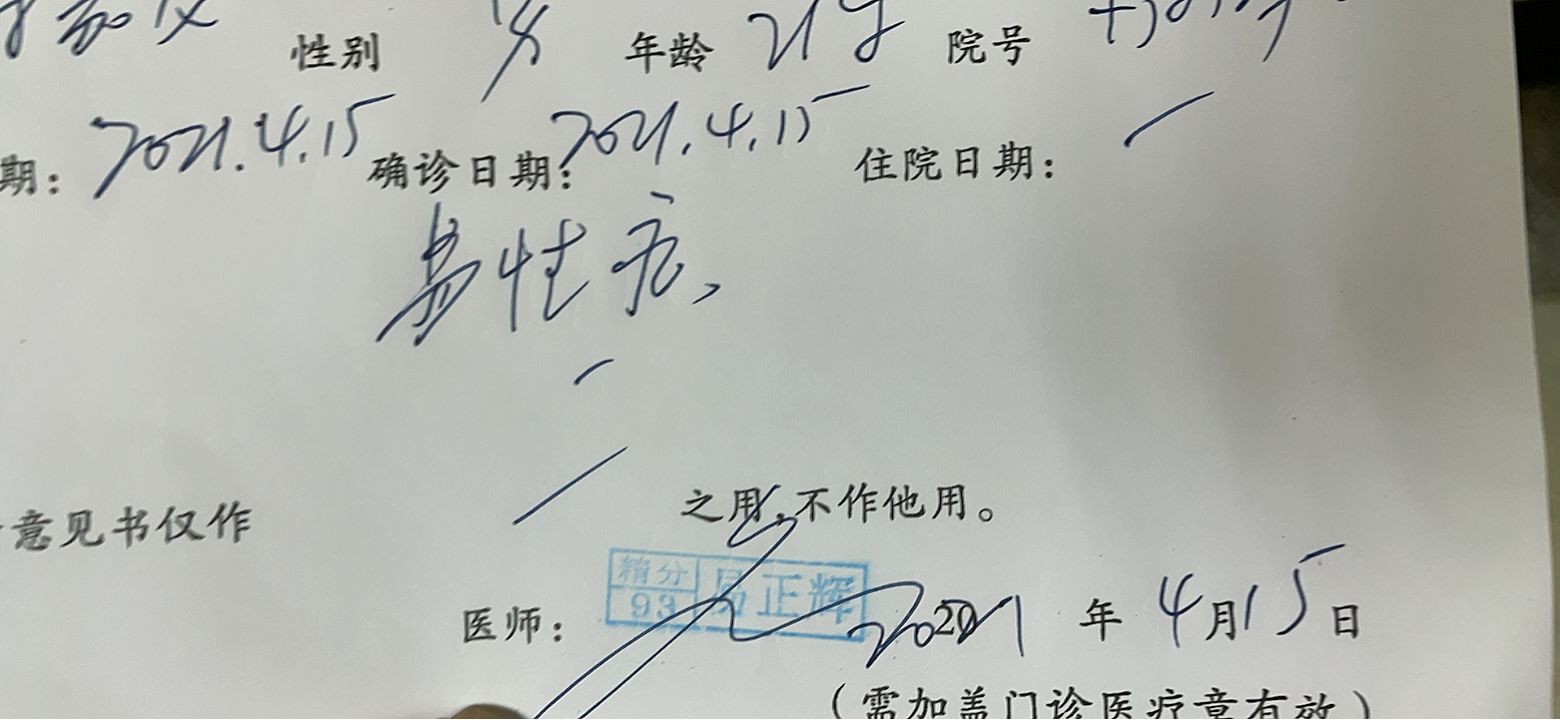 性别 年龄 21岁 院号
期: 2021.4.15 确诊日期: 2021.4.15 住院日期:
易性症
意见书仅作 之用,不作他用。
精分 93 易正辉
医师: 2021 年 4月15日
(需加盖门诊医疗章有效)